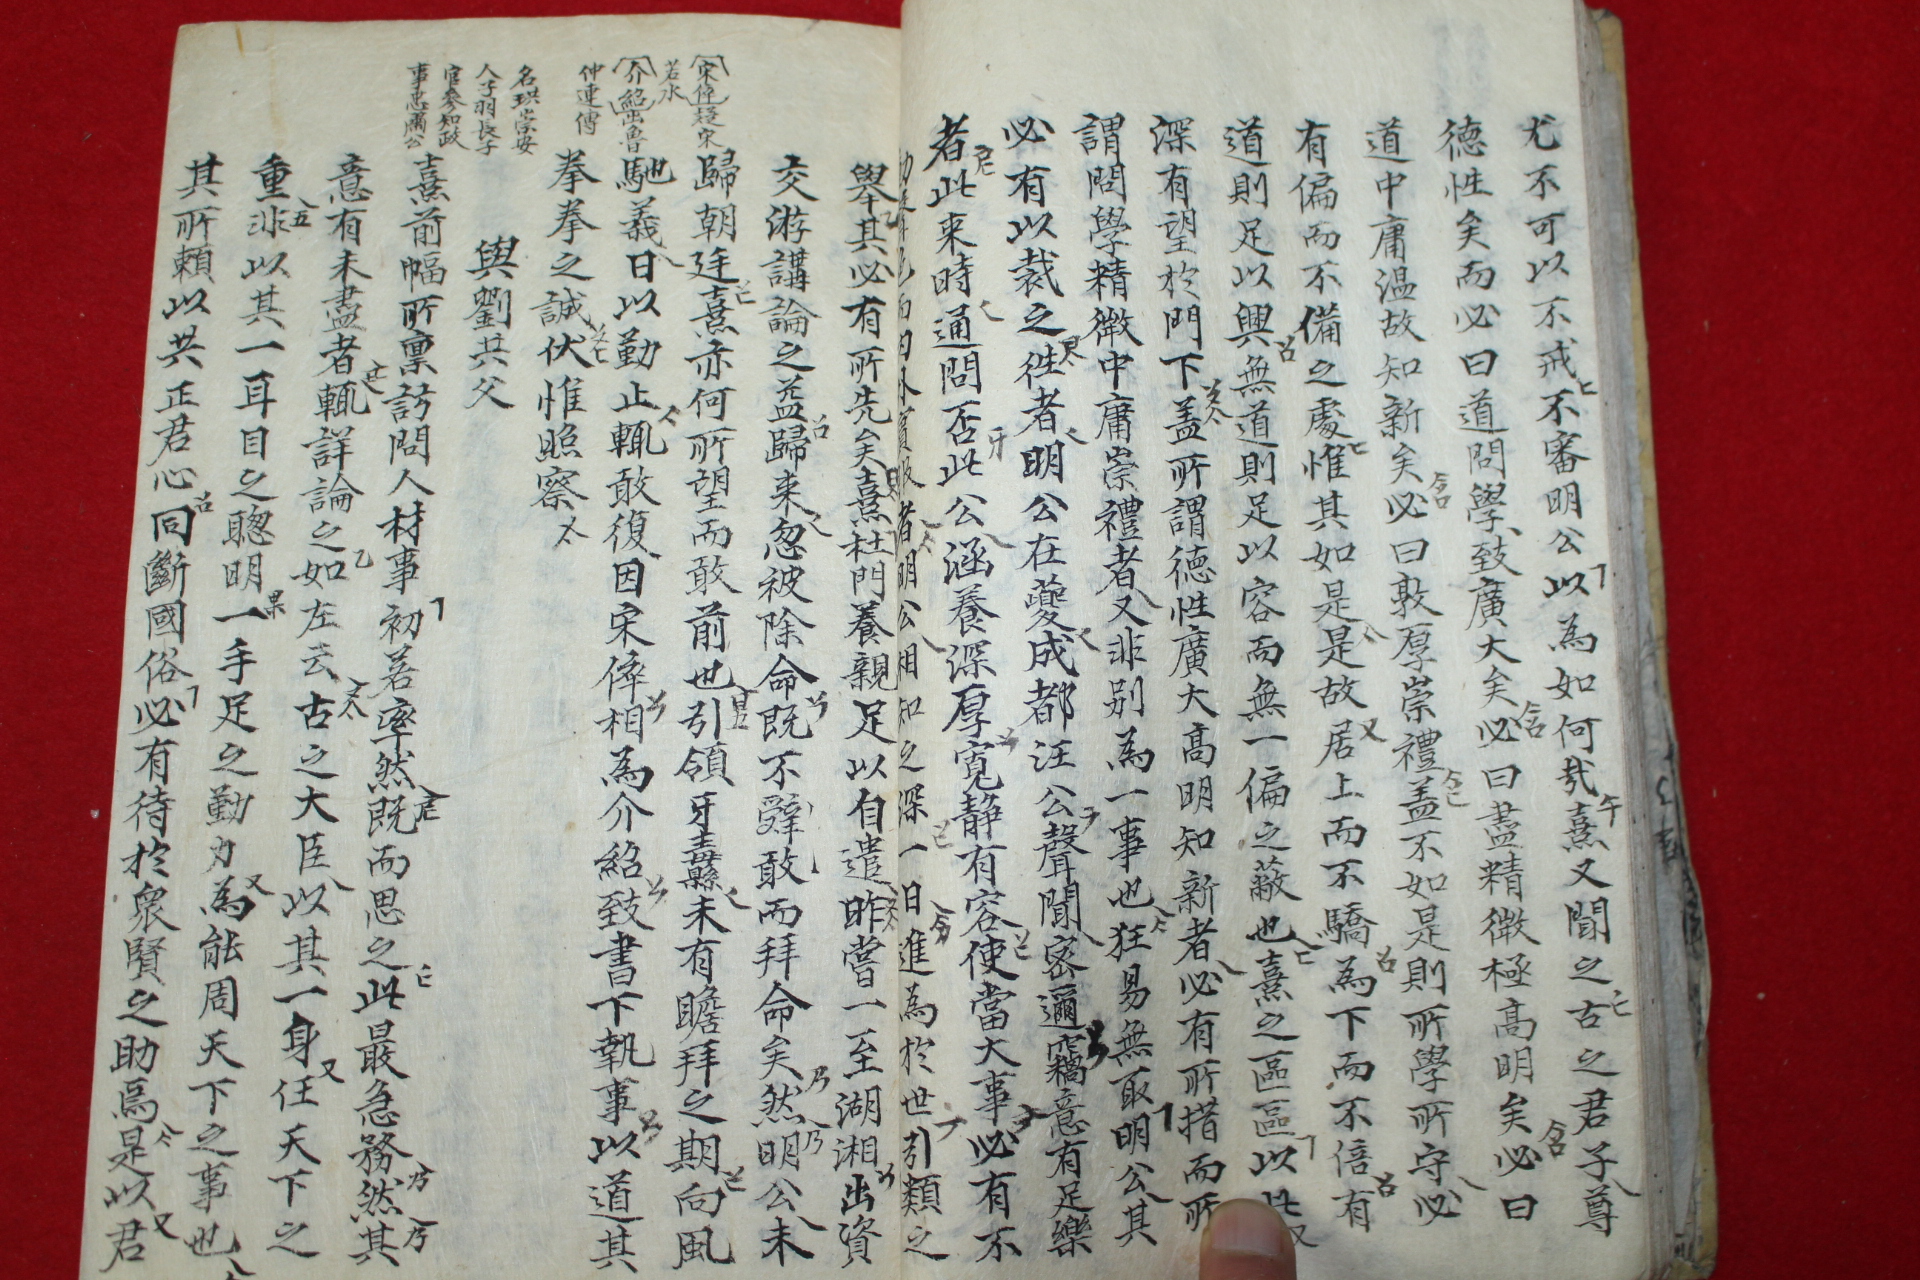 尤不可以不戒不審明公以為如何哉熹又聞之古之君子尊
德性矣而必曰道問學致廣大矣必曰盡精微極高明矣必曰
道中庸溫故知新矣必曰敦厚崇禮盖不如是則所學所守必
有偏而不備之處惟其如是是故居上而不驕為下而不倍有
道則足以興無道則足以容而無一偏之蔽也熹之區區以此
深有望於門下盖所謂德性廣大高明知新者必有所措而所
謂問學精微中庸崇禮者又非别為一事也狂易無取明公其
必有以裁之徃者明公在夔成都汪公聲聞密邇竊意有足樂
者此來時通問否此公涵養深厚寬静有容使當大事必有不
者明公相知之深一日進為於世引類之
舉其必有所先矣熹杜門養親足以自遣昨嘗一至湖湘出資
交游講論之益歸来忽被除命既不辤敢而拜命矣然明公未
歸朝廷熹亦何所望而敢前也引領牙纛未有瞻拜之期向風
馳義日以勤止輒敢復因宋倅相為介紹致書下執事以道其
拳拳之誠伏惟照察
與劉共父
熹前幅所禀訪問人材事初若率然既而思之此最急務然其
意有未盡者輒詳論之如左去古之大臣以其一身任天下之
重非以其一耳目之聰明一手足之勤力為能周天下之事也
其所賴以共正君心同斷國俗必有待於衆賢之助焉是以君
宋倅趍宋
若水
介紹出魯
仲連傳
名珙崇安
人子羽長子
官參知政
事忠肅公